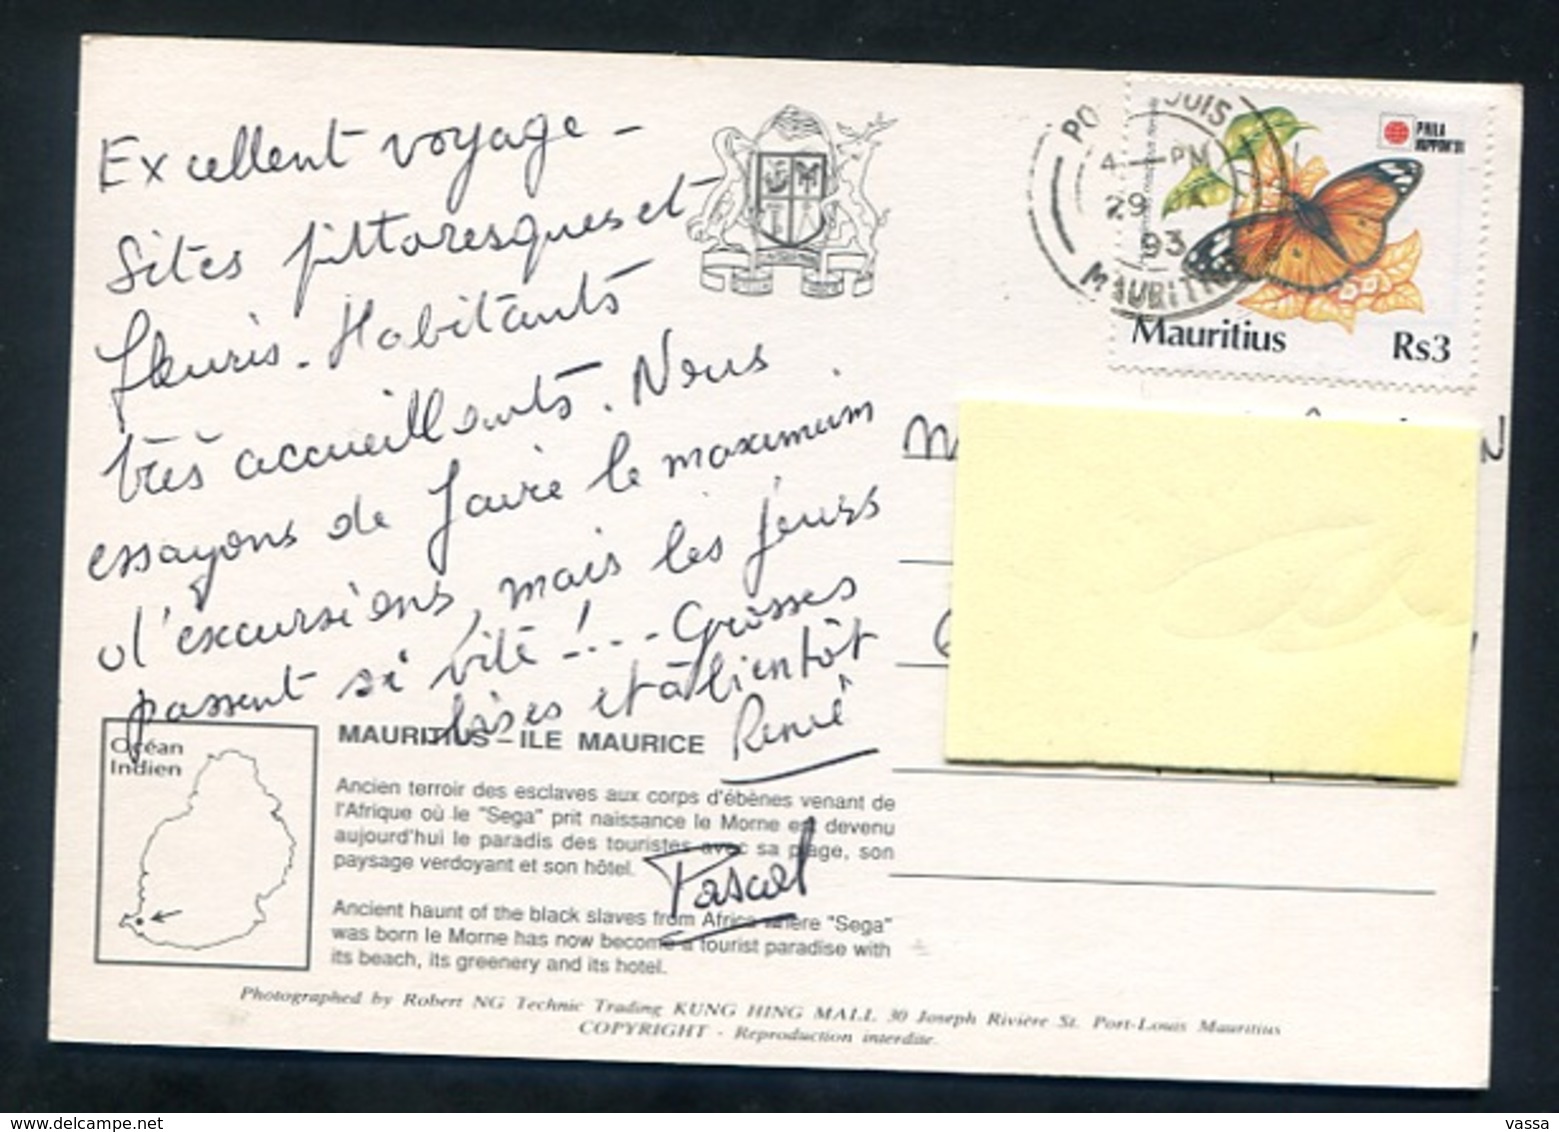 Excellent voyage -
Sites pittoresques et
fleuris - Habitants
très accueillants. Nous
essayons de faire le maximum
d'excursions, mais les jours
passent si vite !... Grosses
bises et à bientôt
René
Pascal
PO OUIS
4 - PM
29
93
MAURITIUS
PHILA
NIPPON'91
Mauritius Rs3
Océan
Indien
MAURITIUS - ILE MAURICE
Ancien terroir des esclaves aux corps d'ébènes venant de
l'Afrique où le "Sega" prit naissance le Morne est devenu
aujourd'hui le paradis des touristes avec sa plage, son
paysage verdoyant et son hôtel.
Ancient haunt of the black slaves from Africa where "Sega"
was born le Morne has now become a tourist paradise with
its beach, its greenery and its hotel.
Photographed by Robert NG Technic Trading KUNG HING MALL 30 Joseph Rivière St. Port-Louis Mauritius
COPYRIGHT - Reproduction interdite.
vassa